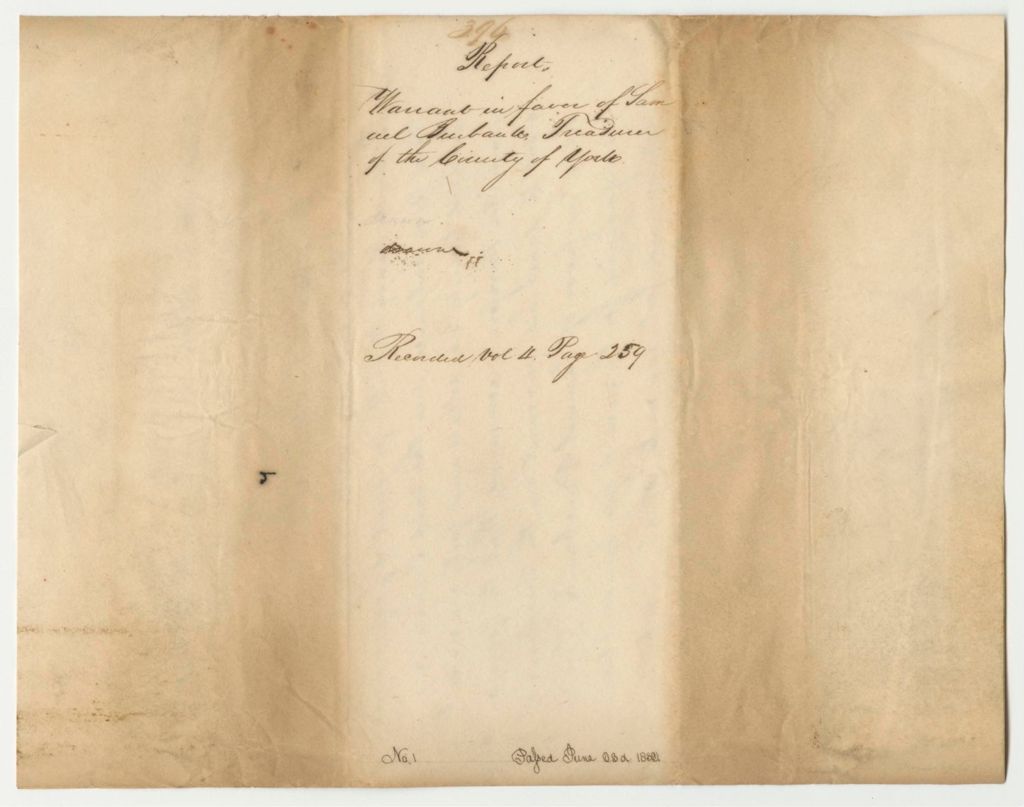 394
Report,
Warrant in favor of Sam
uel Burbank, Treasurer
of the County of York
Recorded Vol 4. Page 259
5
No. 1 Passed June